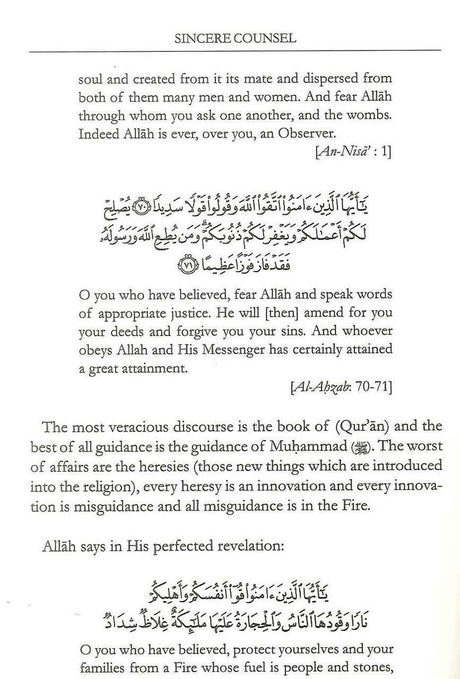 SINCERE COUNSEL
soul and created from it its mate and dispersed from
both of them many men and women. And fear Allāh
through whom you ask one another, and the wombs.
Indeed Allāh is ever, over you, an Observer.
[An-Nisā' : 1]
يَـٰٓأَيُّهَا ٱلَّذِينَ ءَامَنُوا۟ ٱتَّقُوا۟ ٱللَّهَ وَقُولُوا۟ قَوْلًا سَدِيدًا ٧٠ يُصْلِحْ
لَكُمْ أَعْمَـٰلَكُمْ وَيَغْفِرْ لَكُمْ ذُنُوبَكُمْ ۗ وَمَن يُطِعِ ٱللَّهَ وَرَسُولَهُۥ
فَقَدْ فَازَ فَوْزًا عَظِيمًا ٧١
O you who have believed, fear Allāh and speak words
of appropriate justice. He will [then] amend for you
your deeds and forgive you your sins. And whoever
obeys Allah and His Messenger has certainly attained
a great attainment.
[Al-Aḥzab: 70-71]
The most veracious discourse is the book of (Qur'ān) and the
best of all guidance is the guidance of Muḥammad (ﷺ). The worst
of affairs are the heresies (those new things which are introduced
into the religion), every heresy is an innovation and every innova-
tion is misguidance and all misguidance is in the Fire.
Allāh says in His perfected revelation:
يَـٰٓأَيُّهَا ٱلَّذِينَ ءَامَنُوا۟ قُوٓا۟ أَنفُسَكُمْ وَأَهْلِيكُمْ
نَارًا وَقُودُهَا ٱلنَّاسُ وَٱلْحِجَارَةُ عَلَيْهَا مَلَـٰٓئِكَةٌ غِلَاظٌ شِدَادٌ
O you who have believed, protect yourselves and your
families from a Fire whose fuel is people and stones,